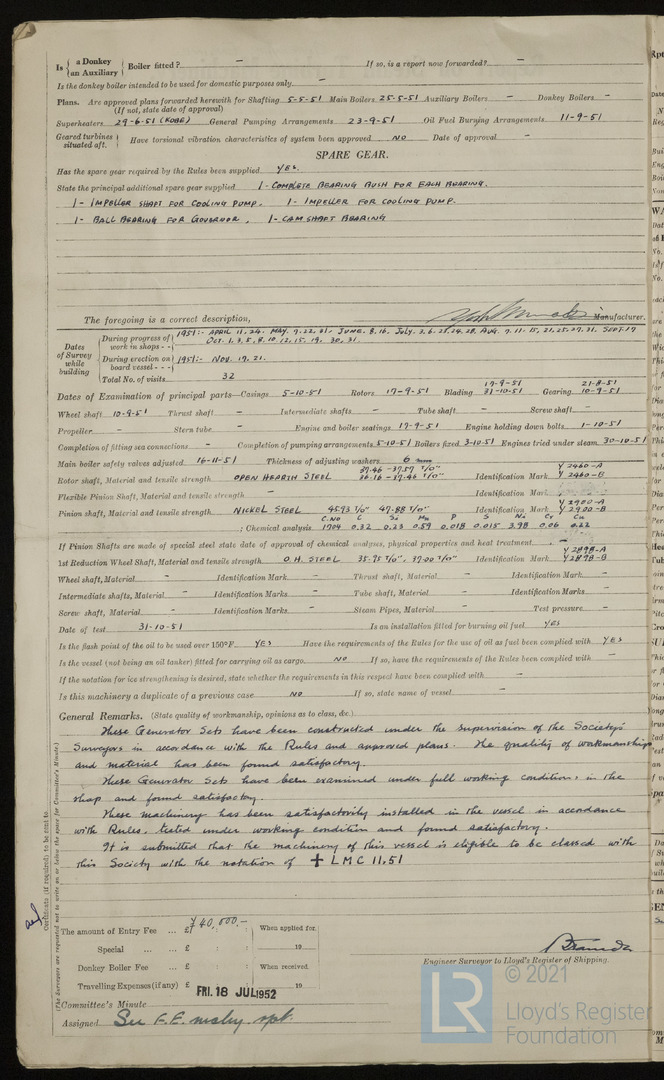 Is { a Donkey / an Auxiliary } Boiler fitted? - If so, is a report now forwarded? -
Is the donkey boiler intended to be used for domestic purposes only -
Plans. Are approved plans forwarded herewith for Shafting 5-5-51 Main Boilers 25-5-51 Auxiliary Boilers - Donkey Boilers -
(If not, state date of approval)
Superheaters 29-6-51 (KOBE) General Pumping Arrangements 23-9-51 Oil Fuel Burning Arrangements 11-9-51
Geared turbines situated aft. } Have torsional vibration characteristics of system been approved NO Date of approval -
SPARE GEAR.
Has the spare gear required by the Rules been supplied YES.
State the principal additional spare gear supplied 1 - COMPLETE BEARING BUSH FOR EACH BEARING.
1 - IMPELLER SHAFT FOR COOLING PUMP, 1 - IMPELLER FOR COOLING PUMP.
1 - BALL BEARING FOR GOVERNOR, 1 - CAM SHAFT BEARING
The foregoing is a correct description, Manufacturer.
Dates of Survey while building
During progress of work in shops - - 1951:- APRIL 11.24. MAY. 7.22.31. JUNE. 8.16. JULY. 3.6. 24.28. AUG. 7.11.15.21.25.27.31. SEPT.17
OCT. 1.3.5.8.10.12.15.19.30.31.
During erection on board vessel - - - 1951:- NOV. 19. 21.
Total No. of visits 32
Dates of Examination of principal parts—Casings 5-10-51 Rotors 17-9-51 Blading 17-9-51 31-10-51 Gearing 21-8-51 10-9-51
Wheel shaft 10-9-51 Thrust shaft - Intermediate shafts - Tube shaft - Screw shaft -
Propeller - Stern tube - Engine and boiler seatings 17-9-51 Engine holding down bolts 1-10-51
Completion of fitting sea connections - Completion of pumping arrangements 5-10-51 Boilers fixed 3-10-51 Engines tried under steam 30-10-51
Main boiler safety valves adjusted 14-11-51 Thickness of adjusting washers 6 mm
Rotor shaft, Material and tensile strength OPEN HEARTH STEEL 37.46 - 37.57 T/□" 36.16 - 37.46 T/□" Identification Mark Y 2460-A Y 2460-B
Flexible Pinion Shaft, Material and tensile strength - Identification Mark
Pinion shaft, Material and tensile strength NICKEL STEEL 45.73 T/□" 47.88 T/□" Identification Mark Y 2900-A Y 2900-B
C.NO C Si Mn P S Ni Cr Cu
: Chemical analysis 1704 0.32 0.23 0.59 0.018 0.015 3.98 0.06 0.22
If Pinion Shafts are made of special steel state date of approval of chemical analyses, physical properties and heat treatment -
1st Reduction Wheel Shaft, Material and tensile strength O.H. STEEL 35.75 T/□", 37.00 T/□" Identification Mark Y 2898-A Y 2898-B
Wheel shaft, Material - Identification Mark - Thrust shaft, Material - Identification Mark -
Intermediate shafts, Material - Identification Marks - Tube shaft, Material - Identification Marks -
Screw shaft, Material - Identification Marks - Steam Pipes, Material - Test pressure -
Date of test 31-10-51 Is an installation fitted for burning oil fuel YES
Is the flash point of the oil to be used over 150°F. YES Have the requirements of the Rules for the use of oil as fuel been complied with YES
Is the vessel (not being an oil tanker) fitted for carrying oil as cargo NO If so, have the requirements of the Rules been complied with -
If the notation for ice strengthening is desired, state whether the requirements in this respect have been complied with -
Is this machinery a duplicate of a previous case NO If so, state name of vessel -
General Remarks. (State quality of workmanship, opinions as to class, &c.)
These Generator Sets have been constructed under the supervision of the Society's
Surveyors in accordance with the Rules and approved plans. The quality of workmanship
and material has been found satisfactory.
These Generator Sets have been examined under full working conditions in the
shop and found satisfactory.
These machinery has been satisfactorily installed in the vessel in accordance
with Rules, tested under working condition and found satisfactory.
It is submitted that the machinery of this vessel is eligible to be classed with
this Society with the notation of ✠ LMC 11,51
Certificate (if required) to be sent to
(The Surveyors are requested not to write on or below the space for Committee's Minute.)
The amount of Entry Fee ... £ ¥40,000,- When applied for
Special ... ... £ : : 19
Donkey Boiler Fee ... £ : : When received
Travelling Expenses (if any) £ : : 19
Engineer Surveyor to Lloyd's Register of Shipping.
FRI. 18 JUL 1952
Committee's Minute
Assigned See F.E. mchy. rpt.
LR
© 2021
Lloyd's Register
Foundation